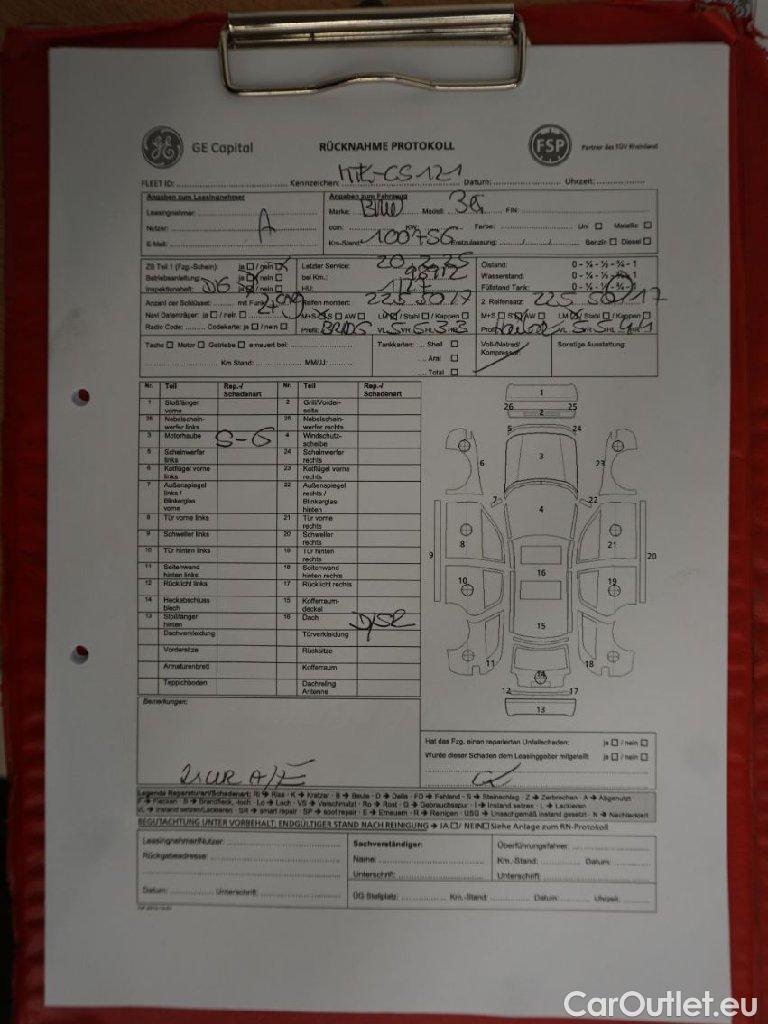 GE Capital RÜCKNAHME PROTOKOLL FSP Partner des TÜV Rheinland
FLEET ID: Kennzeichen: MTK-GS 121 Datum: Uhrzeit:
Angaben zum Leasingnehmer Angaben zum Fahrzeug
Leasingnehmer: Marke: BMW Modell: 3er FIN:
Nutzer: A ccm: KW: Farbe: Uni Metallic
E-Mail: Km-Stand: 100756 Erstzulassung: / / Benzin Diesel
ZB Teil 1 (Fzg.-Schein) ja / nein Letzter Service: Ölstand: 0 - ¼ - ½ - ¾ - 1
Betriebsanleitung: ja / nein bei Km.: Wasserstand: 0 - ¼ - ½ - ¾ - 1
Inspektionsheft: ja / nein HU: Füllstand Tank: 0 - ¼ - ½ - ¾ - 1
Anzahl der Schlüssel: mit Funk Reifen montiert: 225 50/17 2. Reifensatz: 225 50/17
Navi Datenträger: ja / nein M+S S AW LM / Stahl / Kappen M+S S AW LM / Stahl / Kappen
Radio Code: Codekarte: ja / nein Profil:
Tacho Motor Getriebe erneuert bei: Tankkarten: Shell Sonstige Ausstattung:
Aral Kompressor
Km Stand: MM/JJ: Total
Nr. Teil Rep.-/ Schadenart Nr. Teil Rep.-/ Schadenart
1 Stoßfänger vorne 2 Grill/Vorderseite
26 Nebelscheinwerfer links 25 Nebelscheinwerfer rechts
3 Motorhaube S-G 4 Windschutzscheibe
5 Scheinwerfer links 24 Scheinwerfer rechts
6 Kotflügel vorne links 23 Kotflügel vorne rechts
7 Außenspiegel links / Blinkerglas vorne 22 Außenspiegel rechts / Blinkerglas hinten
8 Tür vorne links 21 Tür vorne rechts
9 Schweller links 20 Schweller rechts
10 Tür hinten links 19 Tür hinten rechts
11 Seitenwand hinten links 18 Seitenwand hinten rechts
12 Rücklicht links 17 Rücklicht rechts
14 Heckabschlussblech 15 Kofferraumdeckel
13 Stoßfänger hinten 16 Dach
Dachverkleidung Türverkleidung
Vordersitze Rücksitze
Armaturenbrett Kofferraum
Teppichboden Dachreling Antenne
1
26 25
2
5 24
3
6 23
7 22
4
8 21
9 20
16
10 19
15
11 18
14
12 17
13
Bemerkungen:
Hat das Fzg. einen reparierten Unfallschaden: ja / nein
Wurde dieser Schaden dem Leasinggeber mitgeteilt ja / nein
Legende Reparaturart/Schadenart: Ri → Riss - K → Kratzer - B → Beule - D → Delle - S → Steinschlag - Z → Zerbrochen - A → Abgenutzt
BEGUTACHTUNG UNTER VORBEHALT: ENDGÜLTIGER STAND NACH REINIGUNG → JA / NEIN Siehe Anlage zum RN-Protokoll
Leasingnehmer/Nutzer: Sachverständiger: Überführungsfahrer:
Rückgabeadresse: Name: Km.-Stand: Datum:
Unterschrift: Unterschrift:
Datum: Unterschrift: ÜG Stellplatz: Km.-Stand: Datum: Uhrzeit:
CarOutlet.eu